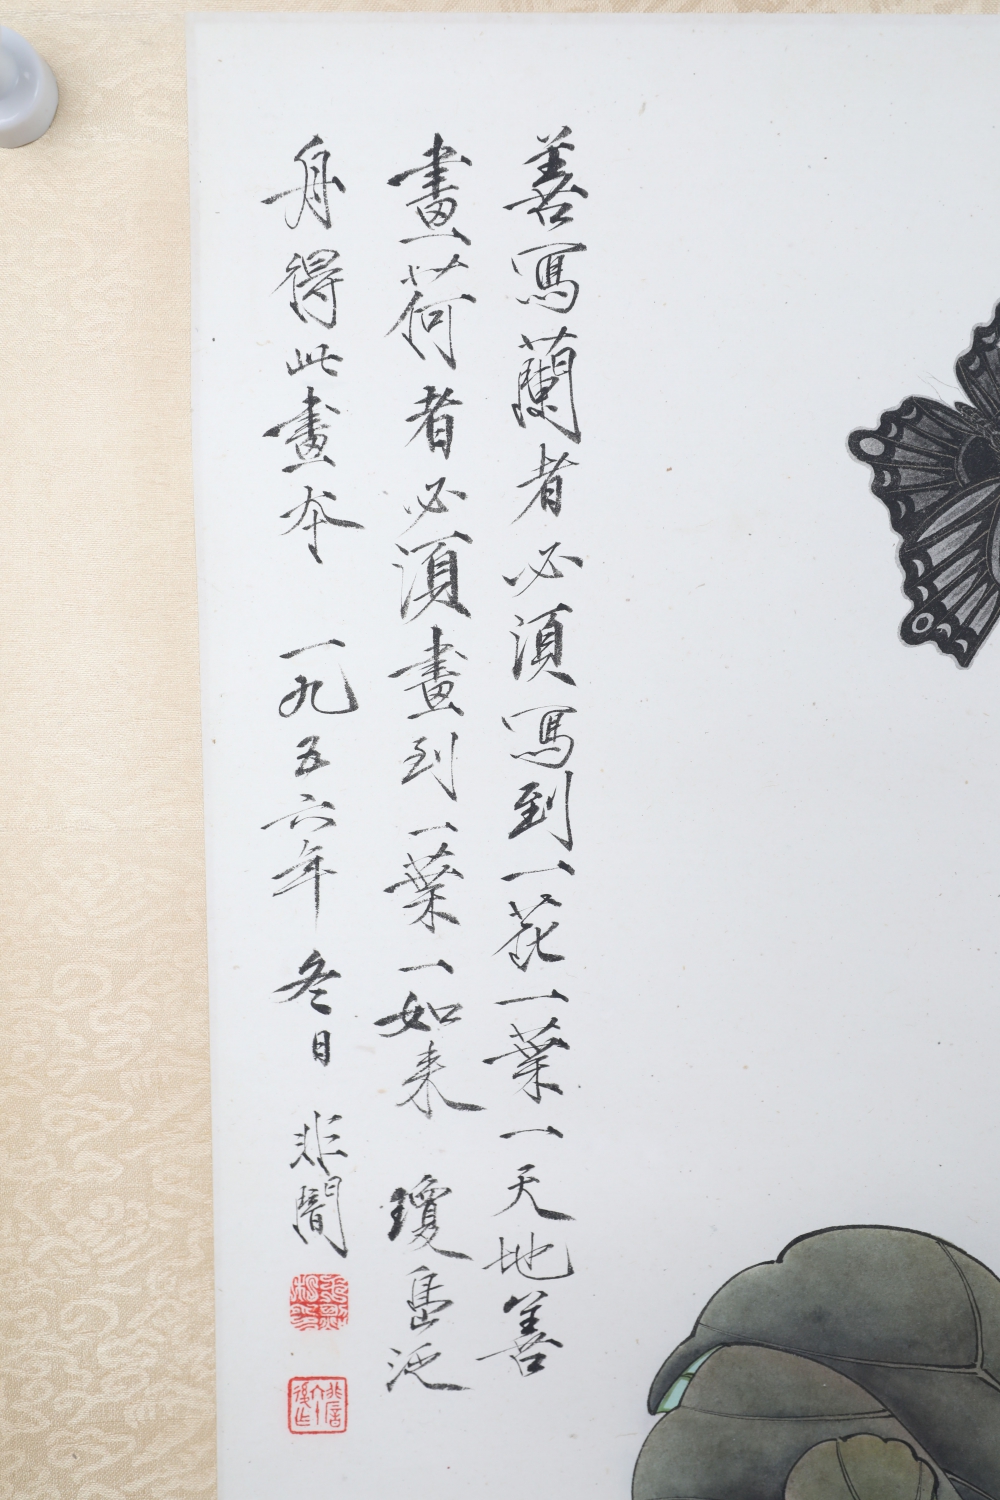 善寫蘭者必須寫到一花一葉一天地善
畫荷者必須畫到一葉一如来瓊島泛
舟得此畫本 一九五六年冬日 非闇